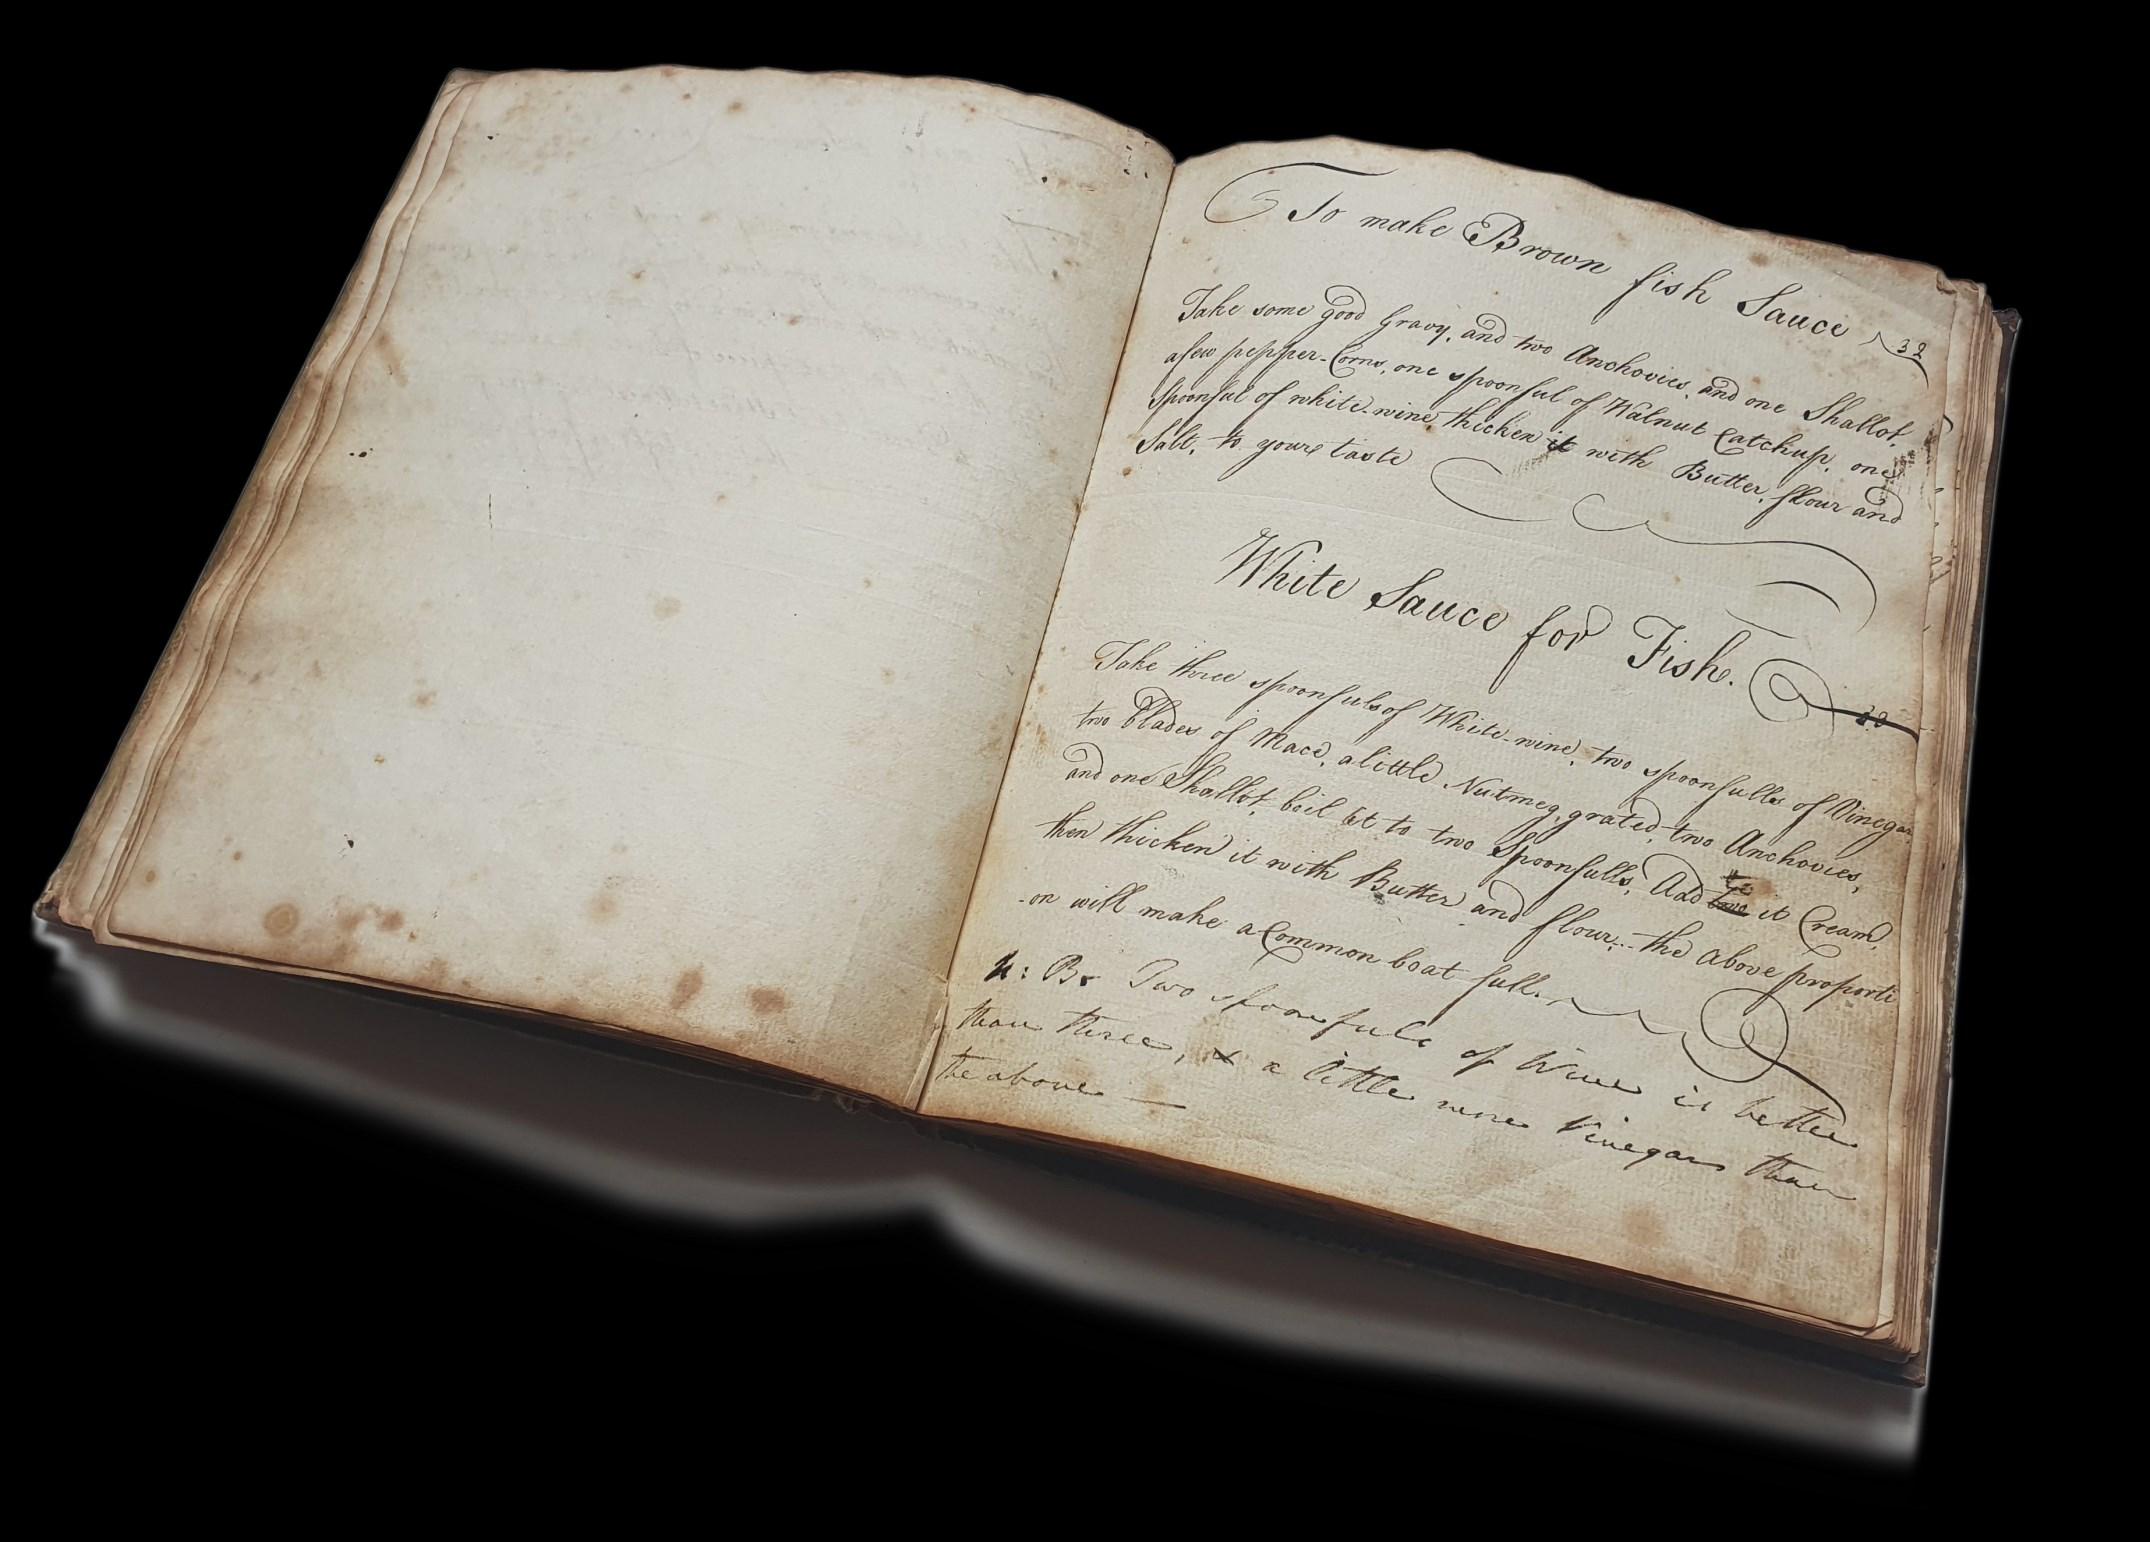 To make Brown fish Sauce 32
Take some good Gravy, and two Anchovies, and one Shallot,
a few pepper-Corns, one spoonful of Walnut Catchup, one
spoonful of white-wine, thicken it with Butter, flour and
Salt, to your taste
White Sauce for Fish. 32
Take three spoonfuls of White-wine, two spoonfulls of Vinegar,
two blades of Mace, a little Nutmeg, grated, two Anchovies,
and one Shallot, boil it to two Spoonfulls, Add to it Cream,
then thicken it with Butter and flour... the above proporti
-on will make a Common boat full.
N: B. Two spoonfuls of Wine is better
than three, & a little more Vinegar than
the above —